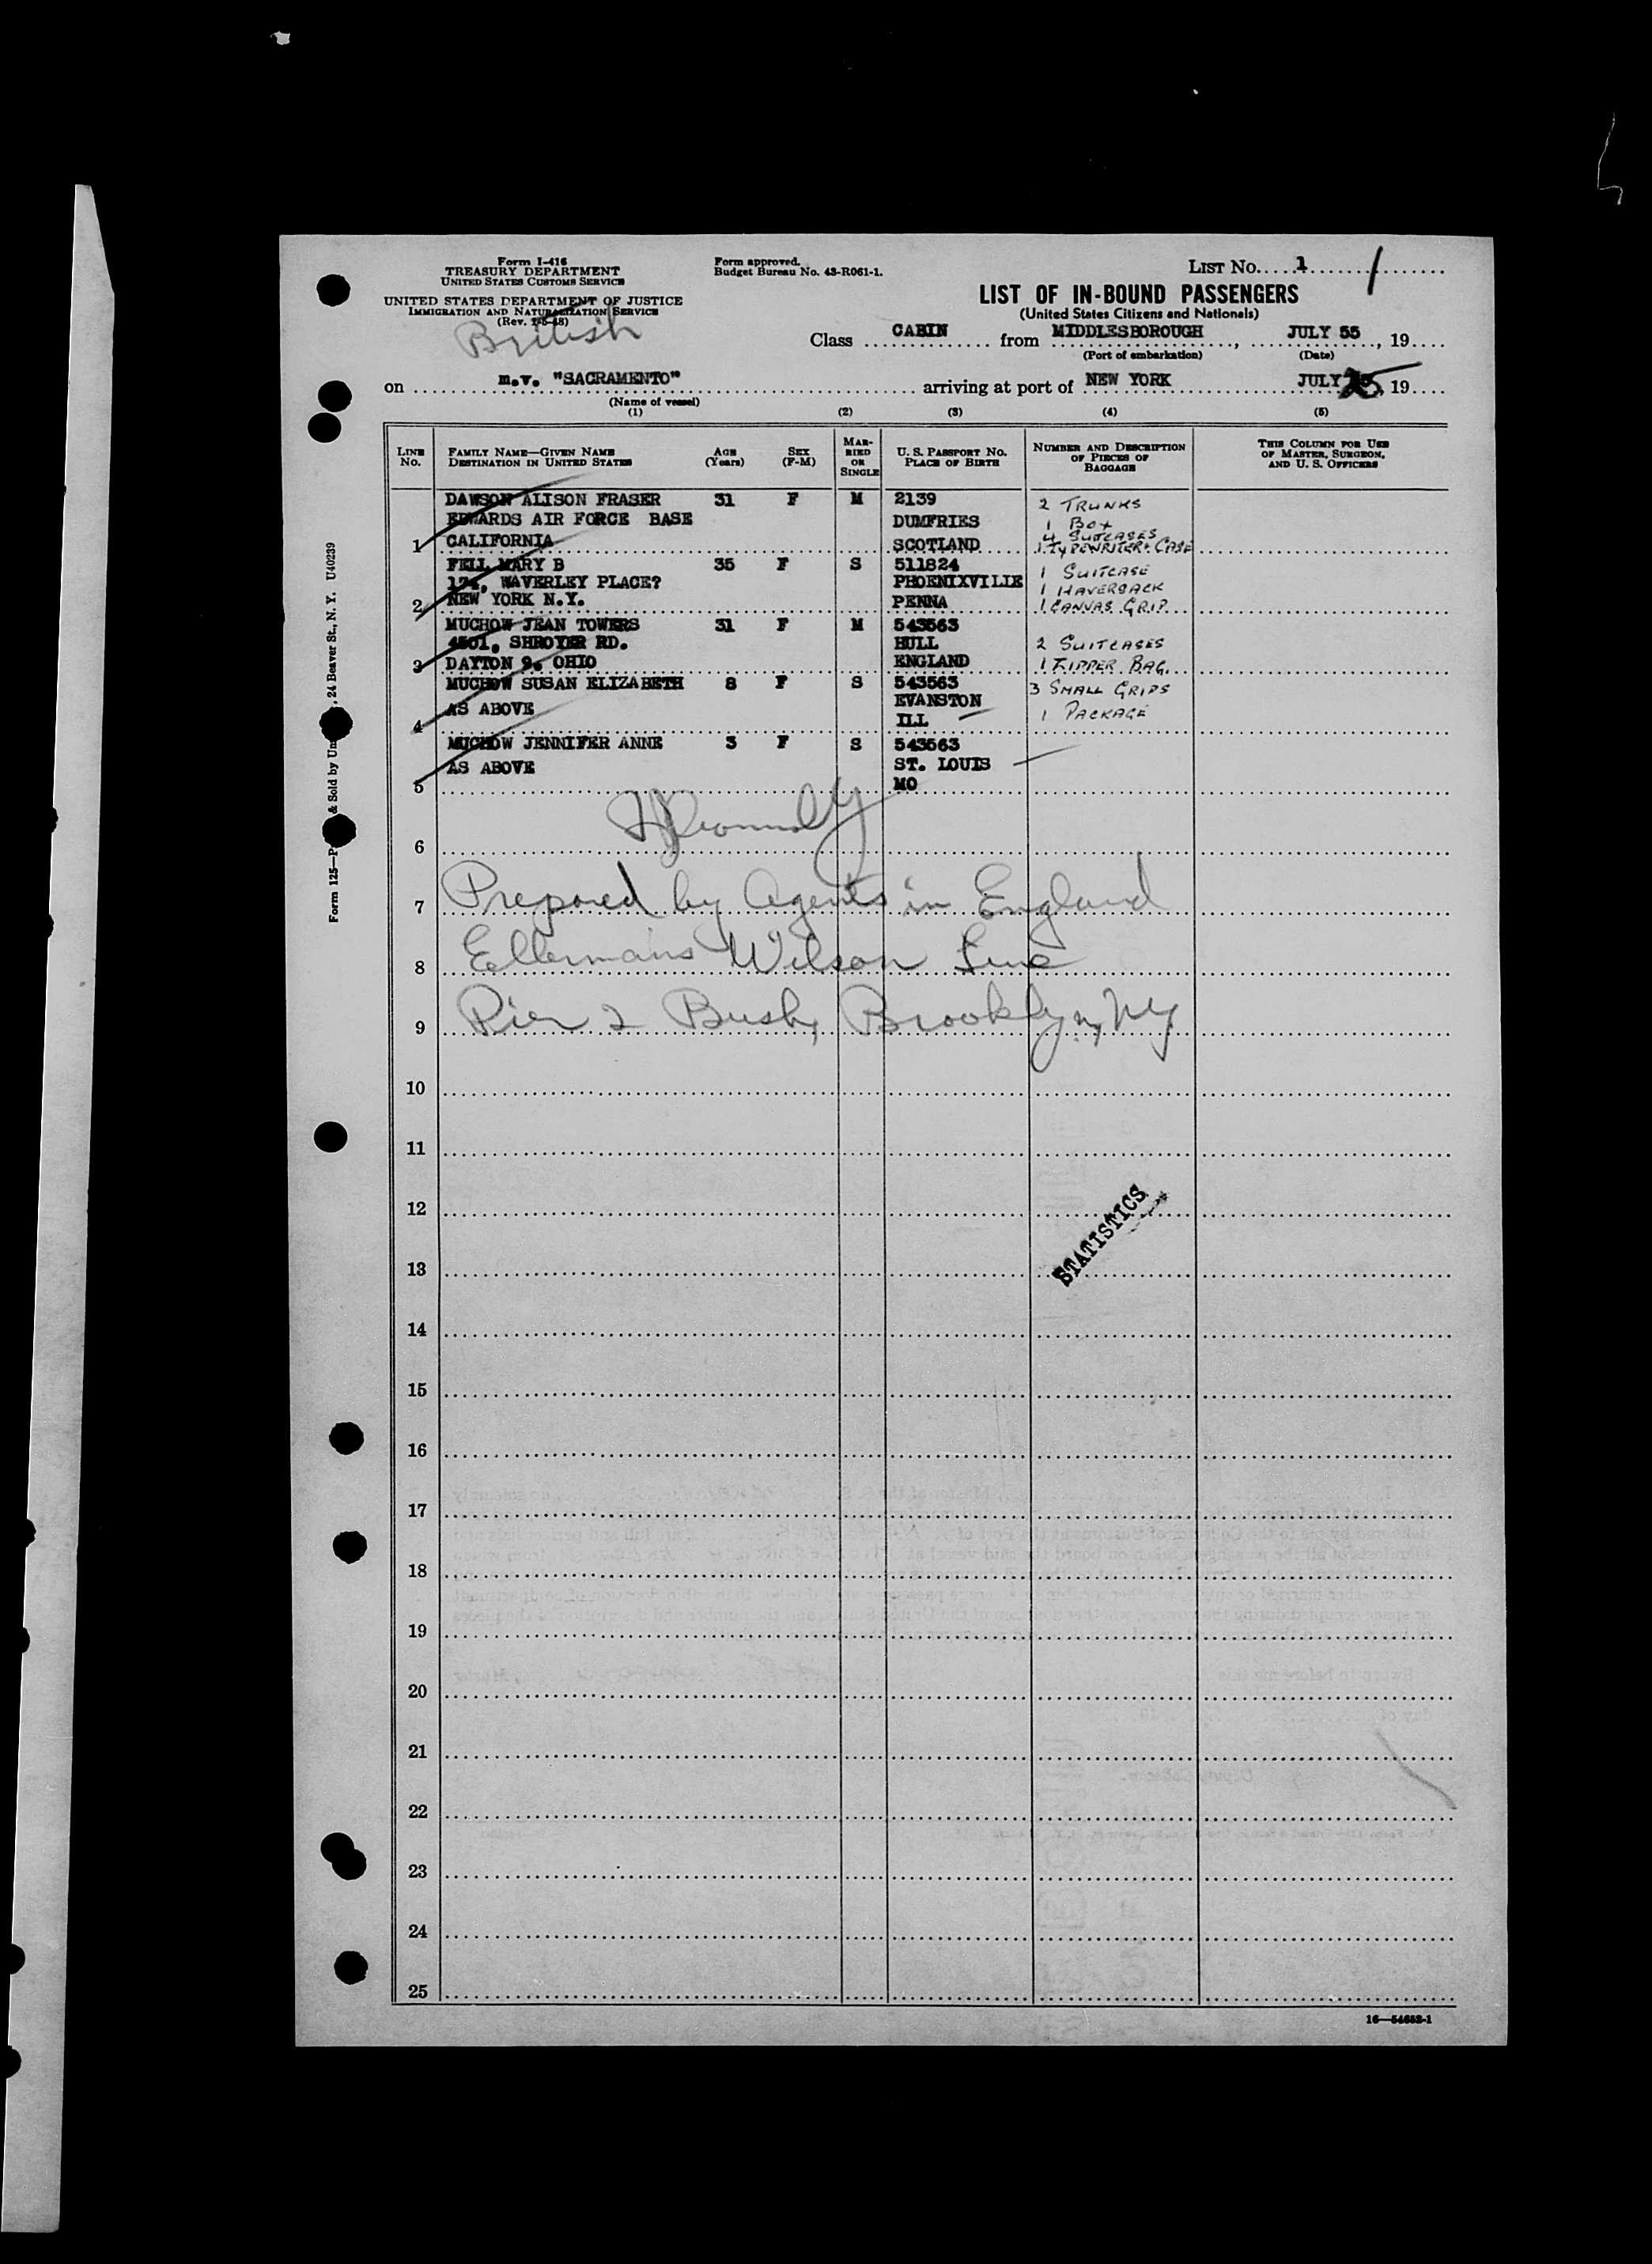 Form I-416
TREASURY DEPARTMENT
UNITED STATES CUSTOMS SERVICE
UNITED STATES DEPARTMENT OF JUSTICE
IMMIGRATION AND NATURALIZATION SERVICE
(Rev.
British
Form approved.
Budget Bureau No. 43-R061-1.
LIST No. 1 /
LIST OF IN-BOUND PASSENGERS
(United States Citizens and Nationals)
Class CABIN from MIDDLESBOROUGH, JULY 55, 19
(Port of embarkation) (Date)
on m.v. "SACRAMENTO" arriving at port of NEW YORK JULY 25, 19
(Name of vessel)
(1) (2) (3) (4) (5)
LINE No. FAMILY NAME—GIVEN NAME DESTINATION IN UNITED STATES AGE (Years) SEX (F-M) MARRIED OR SINGLE U. S. PASSPORT No. PLACE OF BIRTH NUMBER AND DESCRIPTION OF PIECES OF BAGGAGE THIS COLUMN FOR USE OF MASTER, SURGEON, AND U. S. OFFICERS
DAWSON ALISON FRASER 31 F M 2139 2 TRUNKS
EDWARDS AIR FORCE BASE DUMFRIES 1 BOX
4 SUITCASES
1 CALIFORNIA SCOTLAND 1 TYPEWRITER + CASE
FELL MARY B 35 F S 511824 1 SUITCASE
174, WAVERLEY PLACE? PHOENIXVILLE 1 HAVERSACK
2 NEW YORK N.Y. PENNA 1 CANVAS GRIP
MUCHOW JEAN TOWERS 31 F M 543563
4501, SHROYER RD. HULL 2 SUITCASES
3 DAYTON 9. OHIO ENGLAND 1 ZIPPER BAG.
MUCHOW SUSAN ELIZABETH 8 F S 543563 3 SMALL GRIPS
AS ABOVE EVANSTON 1 PACKAGE
4 ILL
MUCHOW JENNIFER ANNE 3 F S 543563
AS ABOVE ST. LOUIS
5 MO
6
7 Prepared by Agents in England
8 Ellermans Wilson Line
9 Pier 2 Bush, Brooklyn, NY
10
11
12
STATISTICS
13
14
15
16
17
18
19
20
21
22
23
24
25
16—54652-1
Form 125—P & Sold by Un , 24 Beaver St., N. Y. U40239